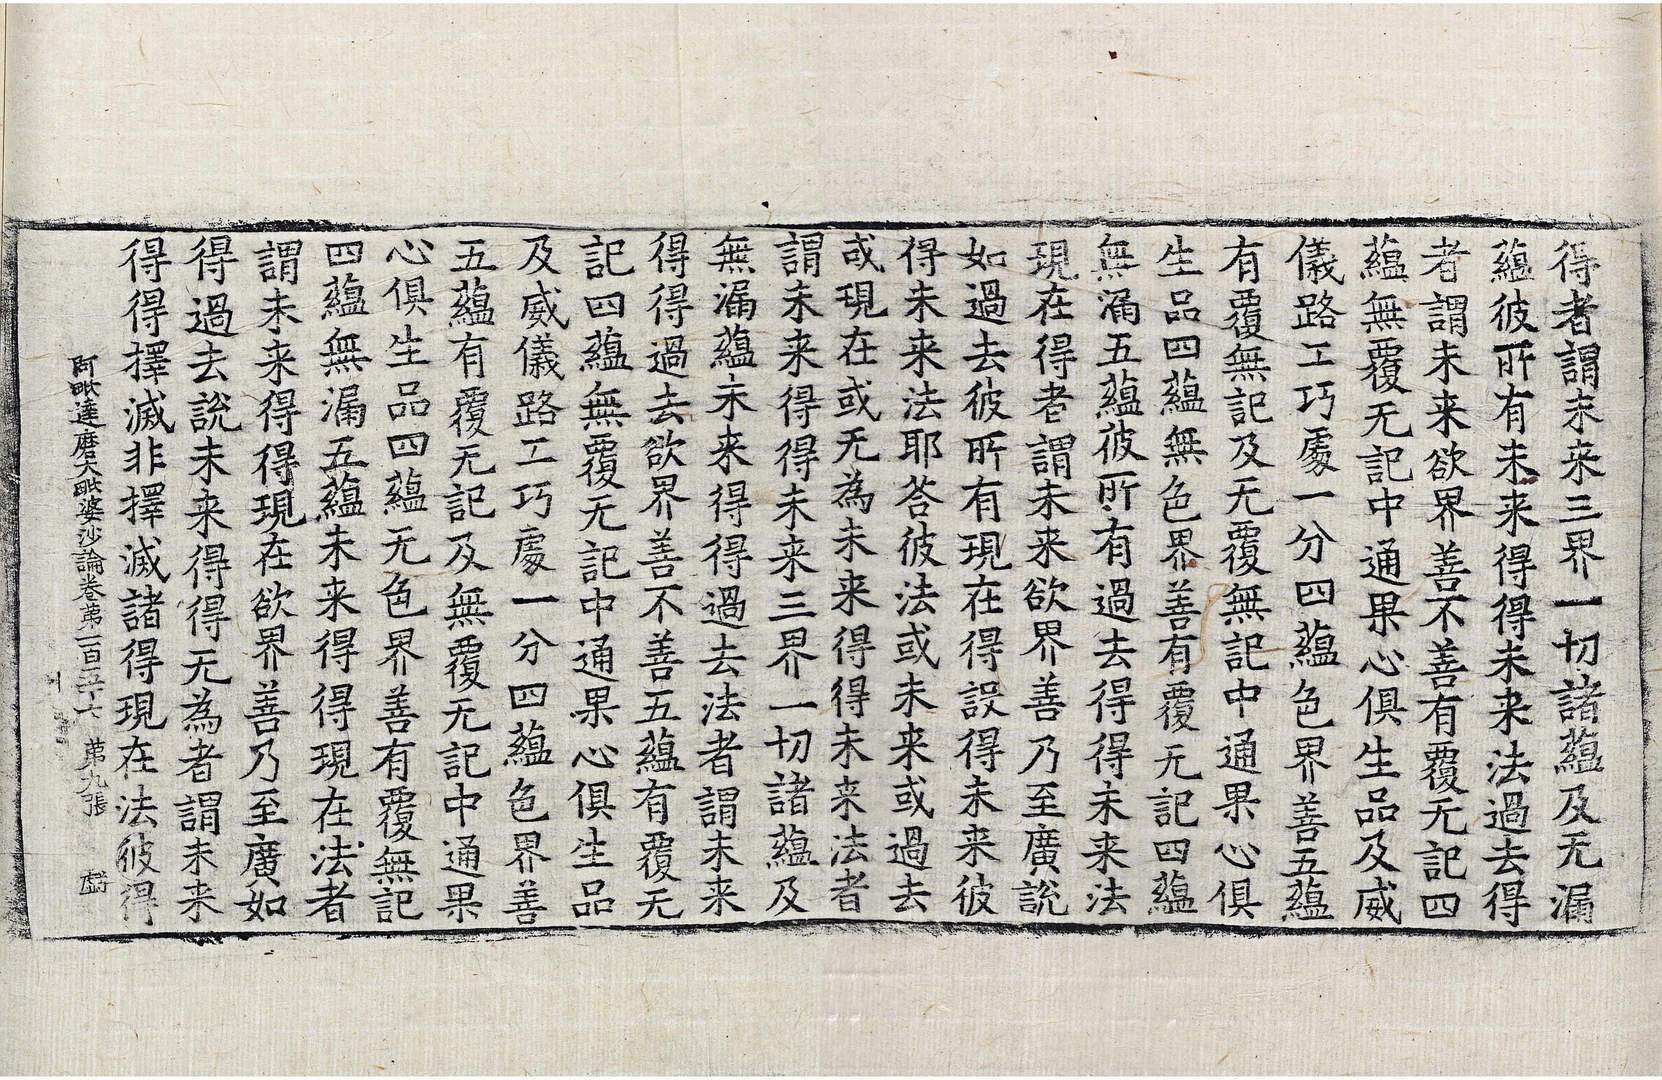 得者謂未来三界一切諸蘊及无漏
蘊彼所有未来得得未来法過去得
者謂未来欲界善不善有覆无記四
蘊無覆无記中通果心俱生品及威
儀路工巧處一分四蘊色界善五蘊
有覆無記及无覆無記中通果心俱
生品四蘊無色界善有覆无記四蘊
無漏五蘊彼所有過去得得未来法
現在得者謂未来欲界善乃至廣說
如過去彼所有現在得設得未来彼
得未来法耶答彼法或未来或過去
或現在或无為未来得得未来法者
謂未来得得未来三界一切諸蘊及
無漏蘊未来得得過去法者謂未来
得得過去欲界善不善五蘊有覆无
記四蘊無覆无記中通果心俱生品
及威儀路工巧處一分四蘊色界善
五蘊有覆无記及無覆无記中通果
心俱生品四蘊无色界善有覆無記
四蘊無漏五蘊未来得得現在法者
謂未来得得現在欲界善乃至廣如
得過去說未来得得无為者謂未来
得得擇滅非擇滅諸得現在法彼得
阿毗達磨大毗婆沙論卷苐一百五十七 苐九張